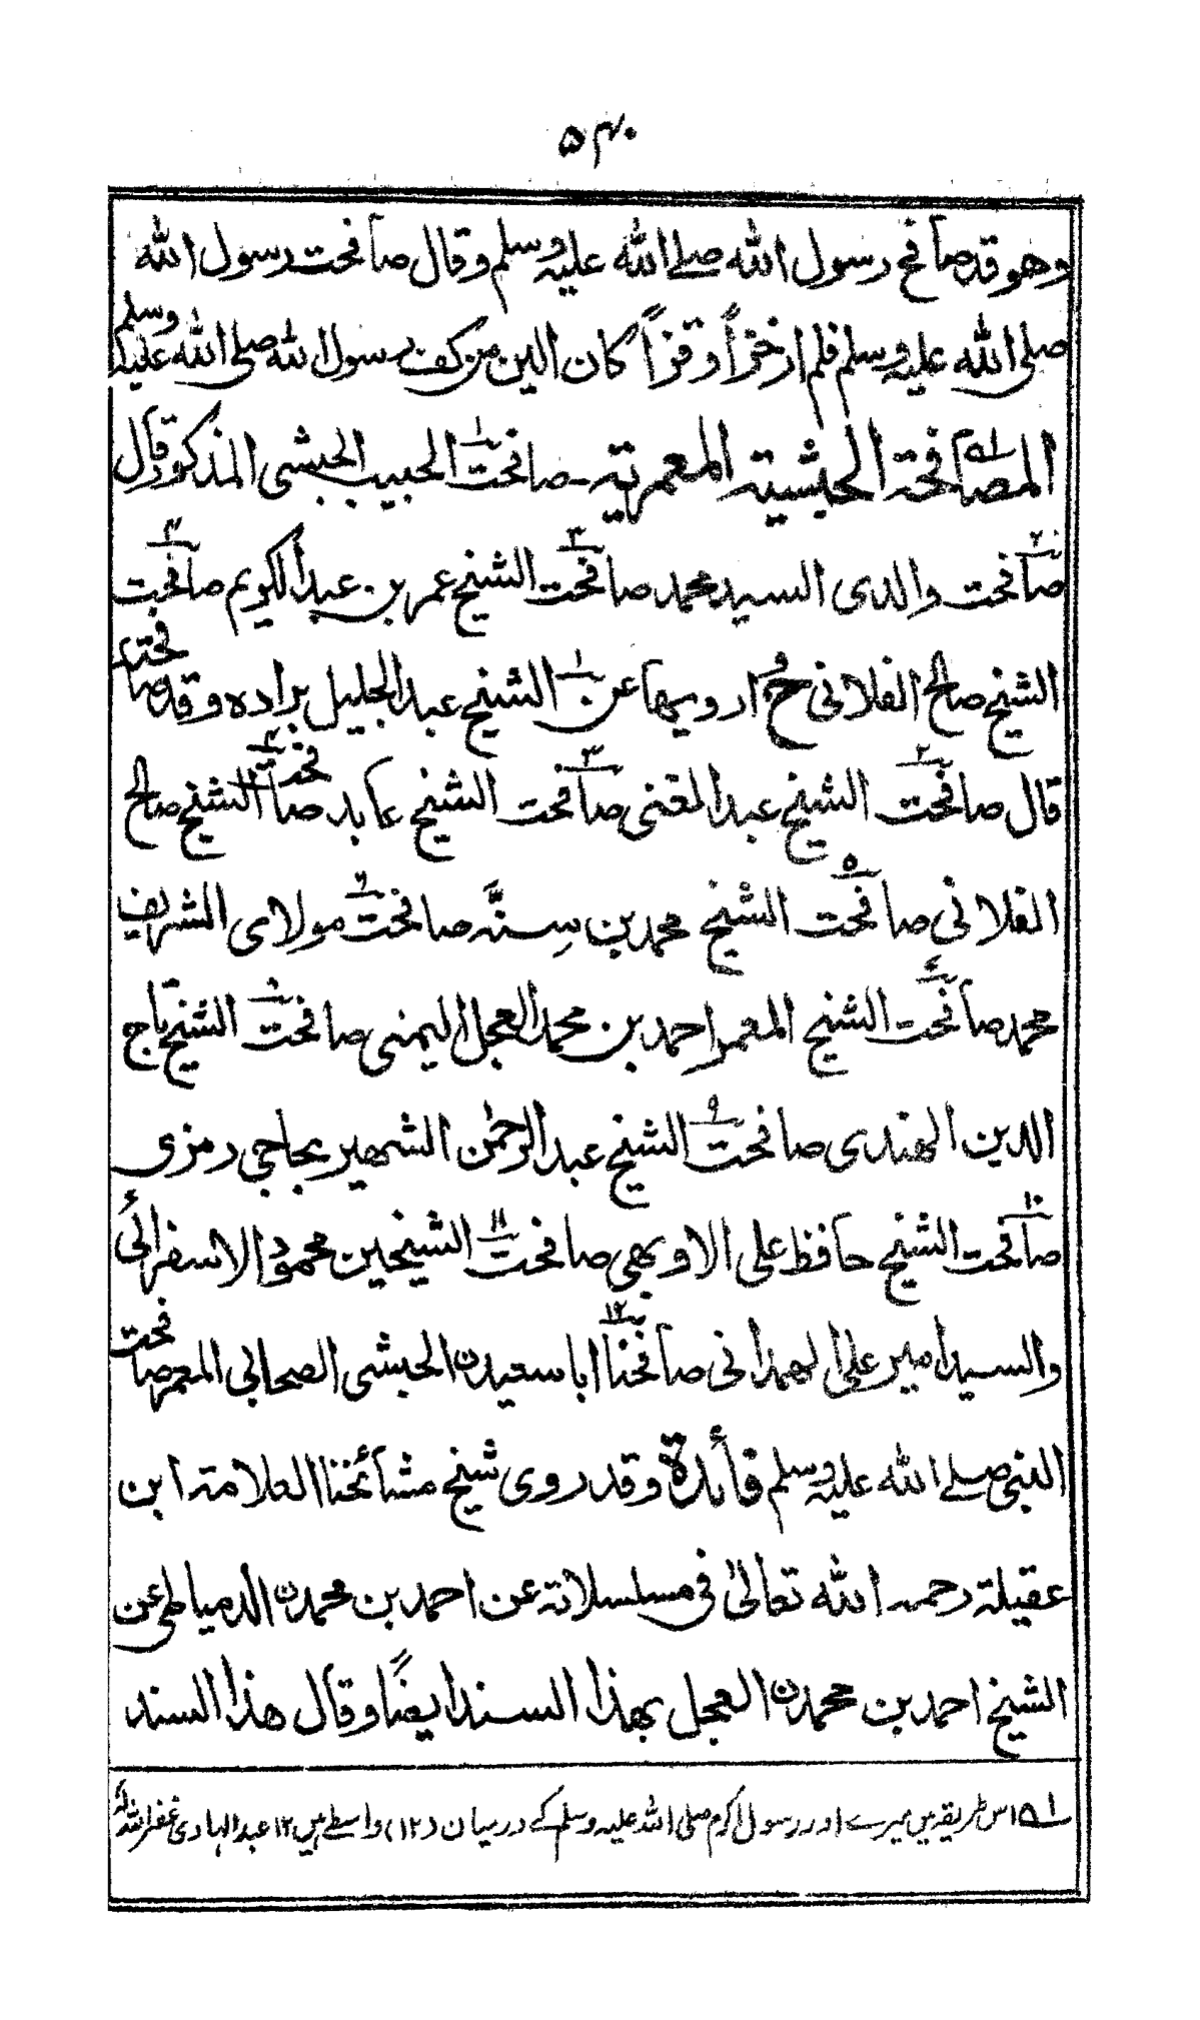 ۵۴۰
وهو قد صافح رسول الله صلے الله عليه وسلم وقال صافحت رسول الله
صلى الله عليه وسلم فلم ار خزاً وقزاً كان الين من كف رسول الله صلى الله عليه وسلم
المصافحة الحبشية المعمرية - صافحت الحبيب الحبشى المذكور قال
صافحت والدى السيد محمد صافحت الشيخ عمر بن عبد الكريم صافحت
الشيخ صالح الفلانى ح وارويها عن الشيخ عبد الجليل براده وقد صافحته
قال صافحت الشيخ عبد الغنى صافحت الشيخ عابد صافحت الشيخ صالح
الفلانى صافحت الشيخ محمد بن سِنَّه صافحت مولاى الشريف
محمد صافحت الشيخ المعمر احمد بن محمد العجل اليمنى صافحت الشيخ تاج
الدين الهندى صافحت الشيخ عبد الرحمٰن الشهير بحاجي رمزى
صافحت الشيخ حافظ على الاوبهي صافحت الشيخين محمود الاسفرائى
والسيد امير على الهمدانى صافحنا ابا سعيد ن الحبشى الصحابى المعمر صافحت
النبى صلے الله عليه وسلم فأئدة وقد روى شيخ مشائخنا العلامة ابن
عقيلة رحمه الله تعالىٰ فى مسلسلاته عن احمد بن محمد ن الدمياطى عن
الشيخ احمد بن محمد ن العجل بهذا السند ايضًا وقال هذا السند
۵۱ اس طریقہ میں میرے اور رسول اکرم صلی اللہ علیہ وسلم کے درمیان (۱۲) واسطے ہیں ۱۲ عبد الہادی غفر اللہ لہٗ